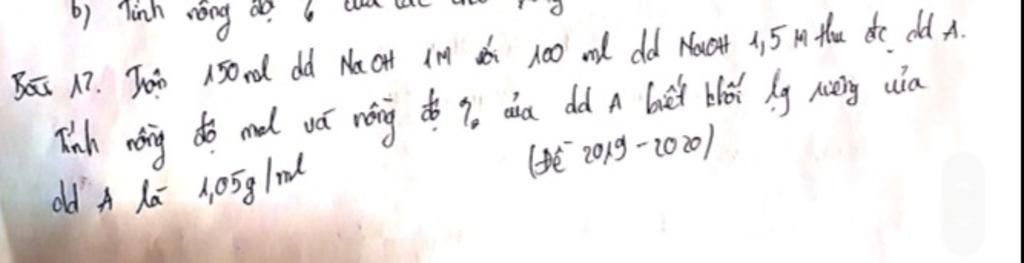 b) Tính nồng độ % của các
Bài 17. Trộn 150 ml dd NaOH 1M với 100 ml dd NaOH 1,5 M thu đc dd A.
Tính nồng độ mol và nồng độ % của dd A biết khối lg riêng của
dd A là 1,05g/ml (Đề 2019-2020)